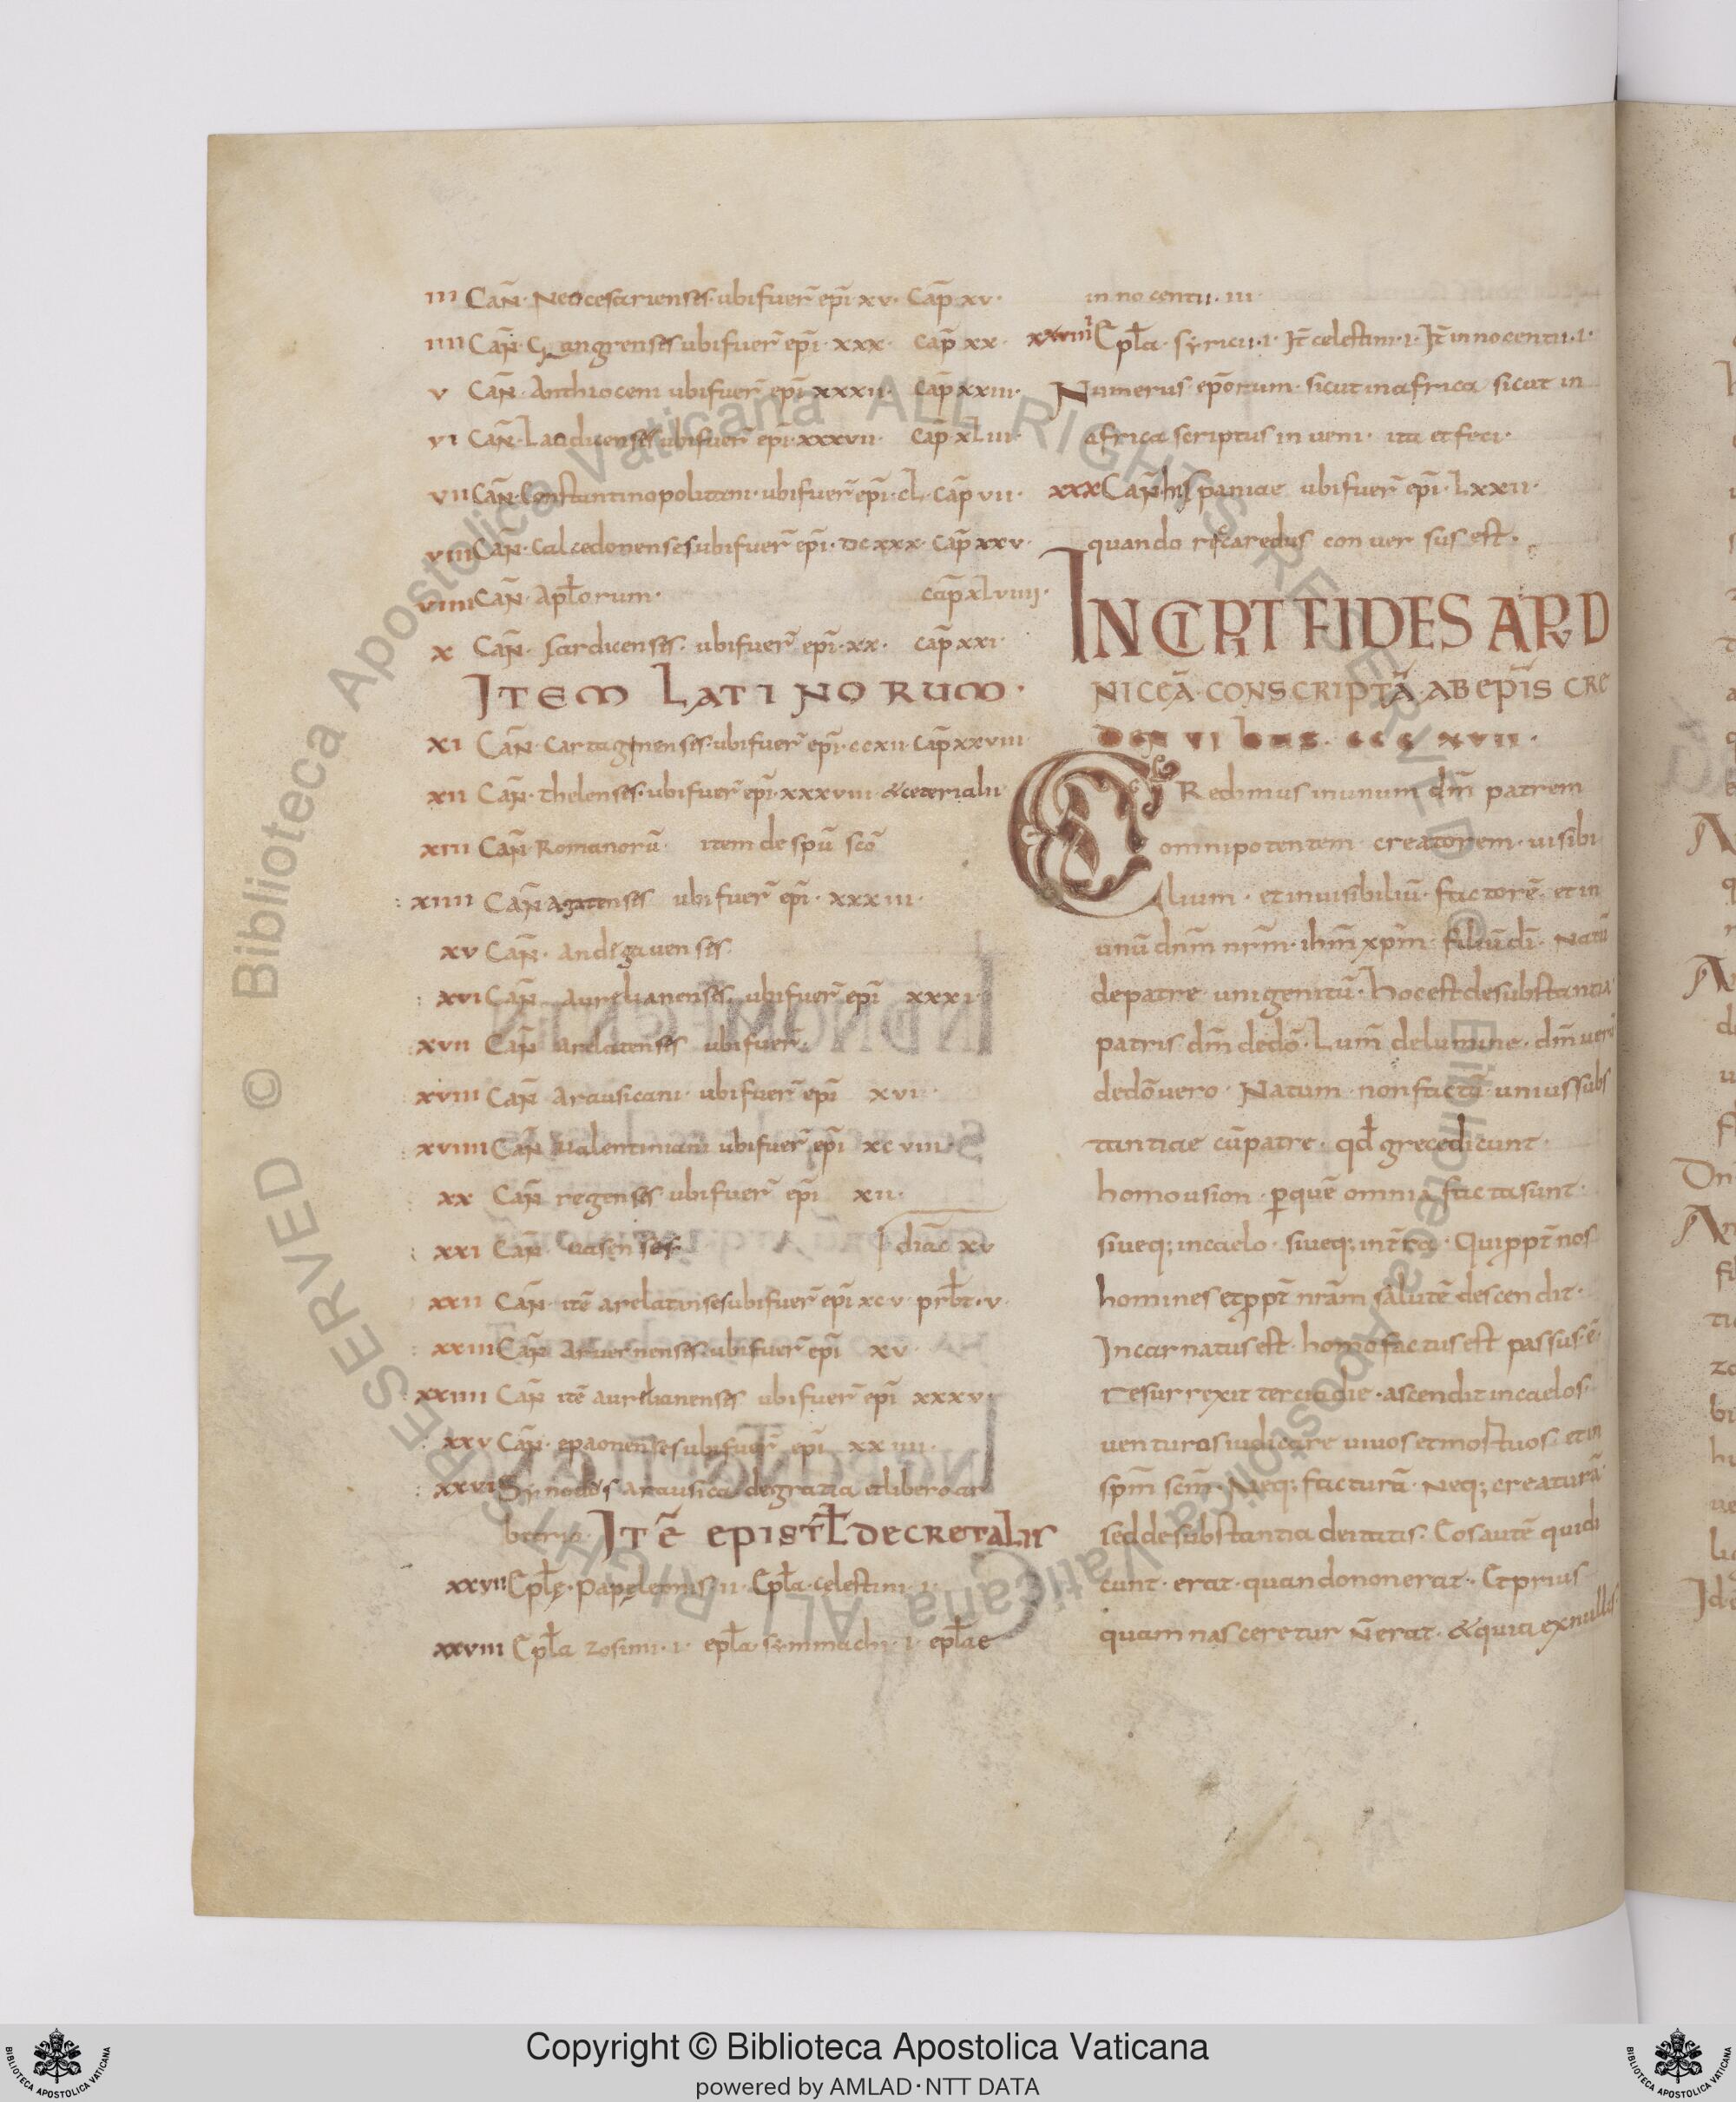 III CAÑ· Neocesarienses· ubi fuer̄ ep̄i· xv· Cap̄ xv·
IIII CAÑ· Gangrenses ubi fuer̄ ep̄i· xxx· Cap̄ xx·
V CAÑ· Anthioceni ubi fuer̄ ep̄i xxxii· Cap̄ xxiii·
VI CAÑ· Laudicenses ubi fuer̄ ep̄i· xxxvii· Cap̄ xLiii·
VII CAÑ· Constantinopolitani· ubi fuer̄ ep̄i· cL· Cap̄ vii·
VIII CAÑ· Calcedonenses ubi fuer̄ ep̄i· DCxxx· Cap̄ xxv·
VIIII CAÑ· Apl̄orum· cap̄ xLviiii·
X CAÑ· Sardicenses· ubi fuer̄ ep̄i· xx· cap̄ xxi·
ITEM LATINORUM·
XI CAÑ· Cartaginenses· ubi fuer̄ ep̄i· ccxii· Cap̄ xxviii·
XII CAÑ· thelenses· ubi fuer̄ ep̄i· xxxviii·
XIII CAÑ· Romanorū· item de spū scō
XIIII CAÑ Agatenses ubi fuer̄ ep̄i· xxxiii·
XV CAÑ· andegavenses·
XVI CAÑ Aurelianenses· ubi fuer̄ ep̄i xxxi·
XVII CAÑ arelatenses ubi fuer̄·
XVIII CAÑ Arausicani· ubi fuer̄ ep̄i xvi·
XVIIII CAÑ Valentiniani ubi fuer̄ ep̄i xcviii·
XX CAÑ regenses ubi fuer̄ ep̄i xii·
XXI CAÑ vasenses· diac̄ xv
XXII CAÑ· itē arelatinses ubi fuer̄ ep̄i xc·v· prb̄t· v·
XXIII CAÑ Arvernenses· ubi fuer̄ ep̄i xv·
XXIIII CAÑ itē aurelianenses ubi fuer̄ ep̄i xxxv·
XXV CAÑ· epaonenses ubi fuer̄ ep̄i xxiiii·
XXVI Synodus Arausica de gratia et libero ar
bitrio· ITĒ EPISTL̄ DECRETALIS
XXVII Epl̄ę· Papę leonis· ii· Epl̄a· celestini· i·
XXVIII Epl̄a zosimi· i· epl̄a· symmachi· i· epl̄ae
innocentii· iii·
XXVIIII Epl̄a· syricii· i· It̄ celestini· i· It̄ innocentii· i·
Numerus· ep̄orum· sicut in africa sicut in
africa scriptus inveni· ita et feci·
XXX CAÑ hispaniae ubi fuer̄ ep̄i· Lxxii·
quando recaredus conversus est·
INCIPIT FIDES APUD
NICEĀ· CONSCRIPTĀ· AB EPĪS CRE
CREdimus in unum dm̄ patrem
omnipotentem· creatorem· visibi
lium· et invisibiliū· factorē· et in
unū dnm̄ nrm̄· ihm̄ xpm̄· filiū dī· Natū
de patre unigenitū· hoc est de substantia
patris· dm̄ de dō· Lum̄ de lumine· dm̄ verū
de dō vero· Natum· non factū· unius subs
tantiae cū patre· qd̄ grece dicunt·
homousion· ꝑ quē omnia facta sunt·
siveq; in caelo· siveq; in t̄ra· Qui ppt̄ nos
homines et ppt̄ nrām salutē descendit·
Incarnatus est· homo factus est passus ē·
resurrexit tercia die· ascendit in caelos·
venturus iudicare vivos et mortuos· et in
spm̄ scm̄· Neq; facturā· Neq; creaturā·
sed de substantia deitatis· Eos autē qui di
cunt· erat· quando non erat· Et prius
quam nasceretur n̄ erat· & quia ex nullis
© Biblioteca Apostolica Vaticana ALL RIGHTS RESERVED © Biblioteca Apostolica Vaticana ALL RIGHTS RESERVED
Copyright © Biblioteca Apostolica Vaticana
powered by AMLAD·NTT DATA
BIBLIOTECA APOSTOLICA VATICANA
BIBLIOTECA APOSTOLICA VATICANA